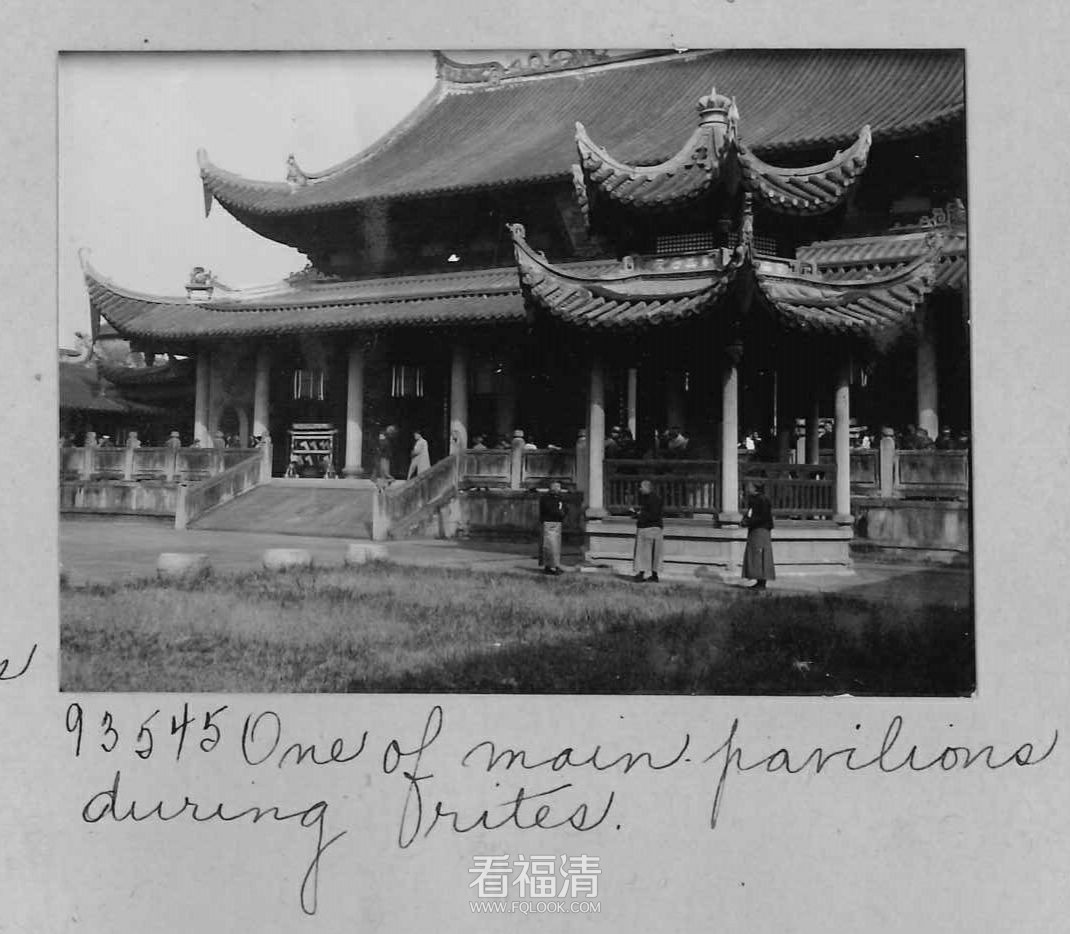 93545 One of main pavilions
during rites.
看福清
WWW.FQLOOK.COM